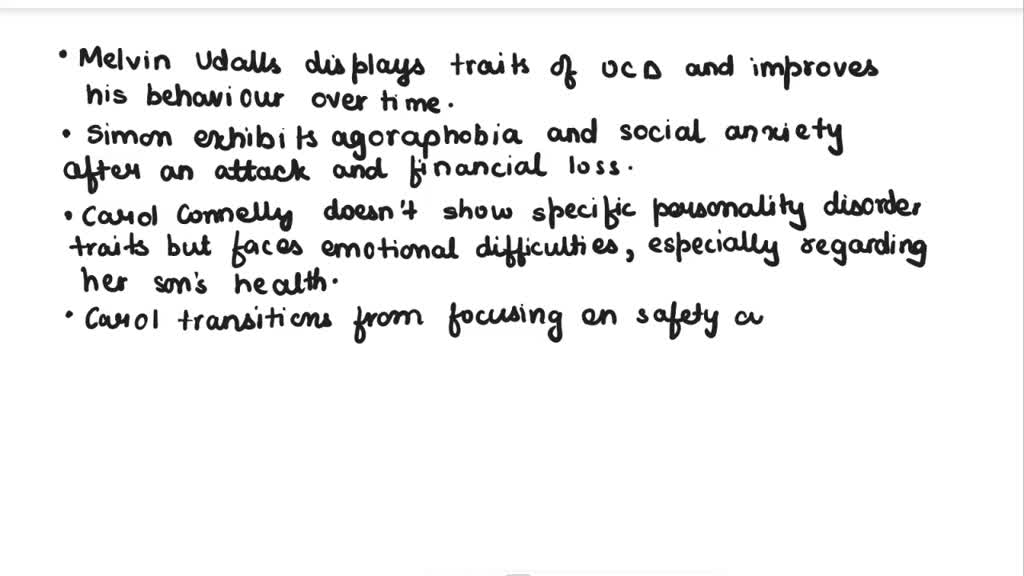 • Melvin Udalls displays traits of OCD and improves
his behaviour over time.
• Simon exhibits agoraphobia and social anxiety
after an attack and financial loss.
• Carol Connelly doesn't show specific personality disorder
traits but faces emotional difficulties, especially regarding
her son's health.
• Carol transitions from focusing on safety a